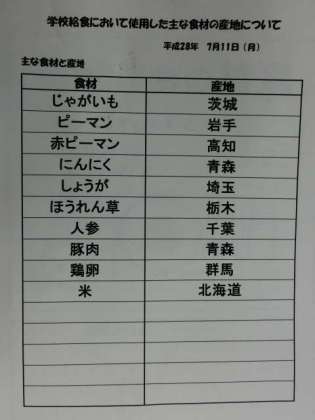 学校給食において使用した主な食材の産地について
平成28年 7月11日(月)
主な食材と産地
食材 産地
じゃがいも 茨城
ピーマン 岩手
赤ピーマン 高知
にんにく 青森
しょうが 埼玉
ほうれん草 栃木
人参 千葉
豚肉 青森
鶏卵 群馬
米 北海道